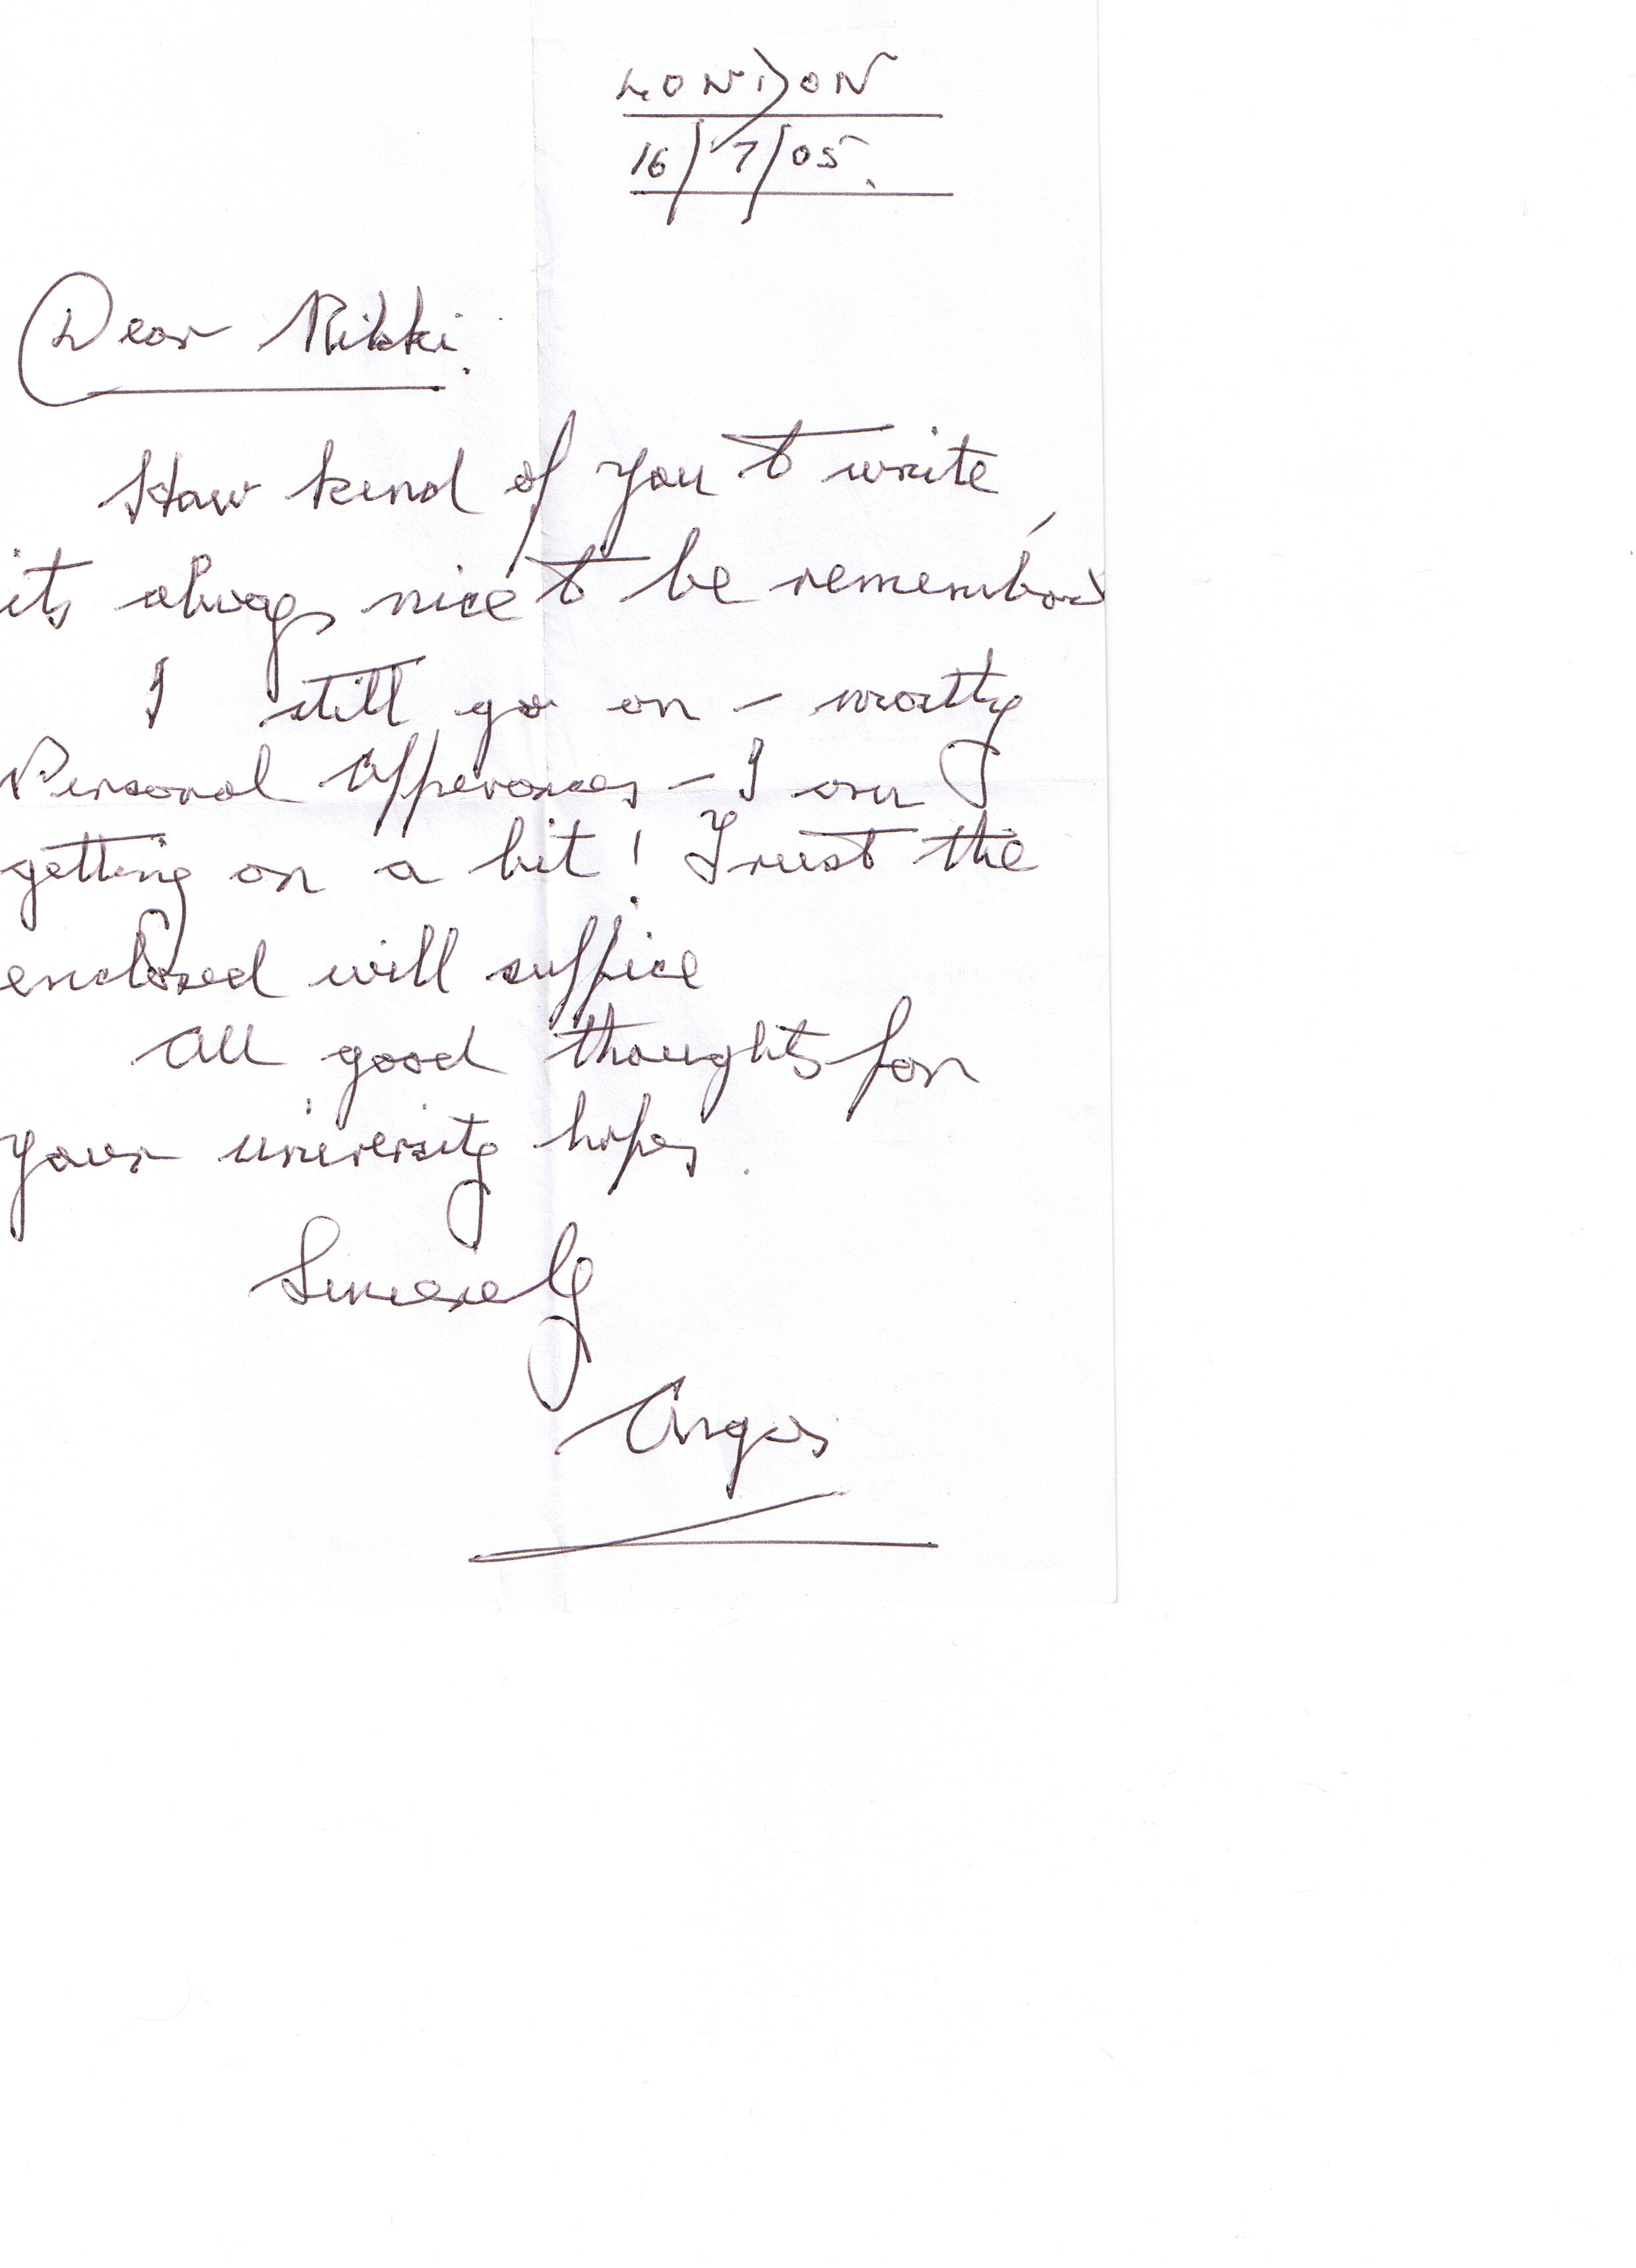 LONDON
16/7/05.
Dear Nikki.
How kind of you to write,
its always nice to be remembered
I still go on - mostly
Personal Apperances - I am
getting on a bit! Trust the
enclosed will suffice
All good thoughts for
your university hopes.
Sincerely
Angus